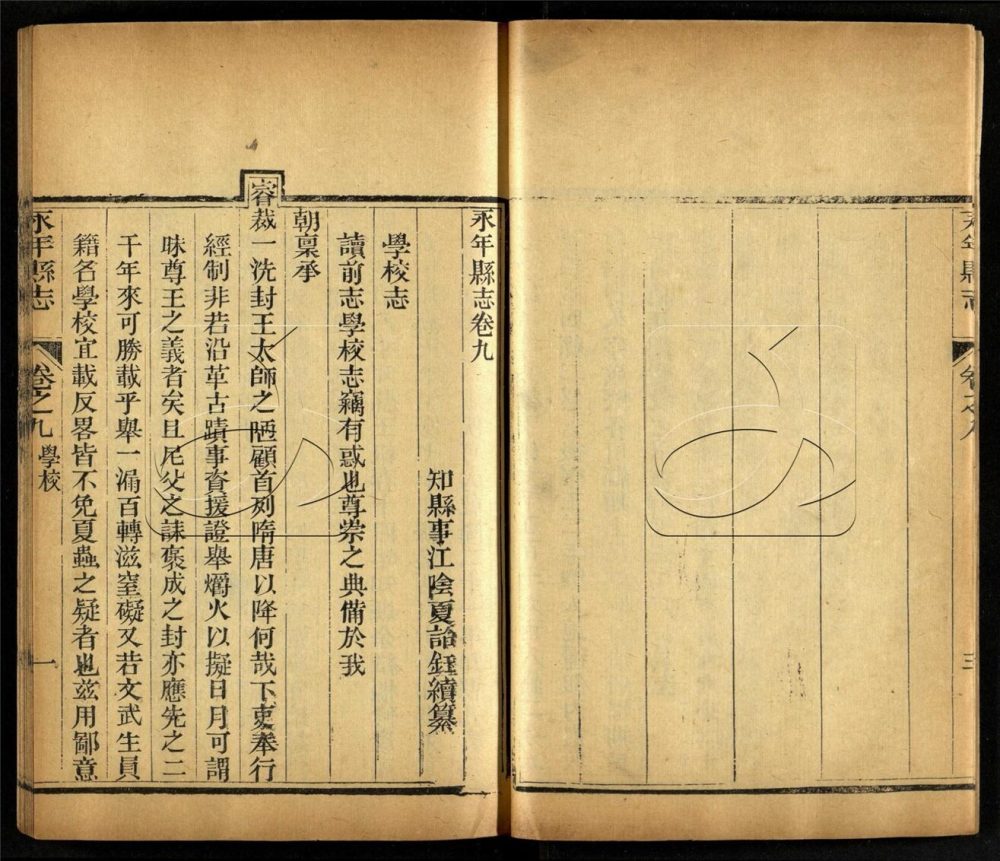 永年縣志
卷之八
三
永年縣志卷九
知縣事江陰夏詒鈺續纂
學校志
讀前志學校志竊有惑也尊崇之典備於我
朝稟承
睿裁一洗封王太師之陋顧首列隋唐以降何哉下吏奉行
經制非若沿革古蹟事資援證舉爝火以擬日月可謂
昧尊王之義者矣且尼父之誄褒成之封亦應先之二
千年來可勝載乎舉一漏百轉滋窒礙又若文武生員
籍名學校宜載反畧皆不免夏蟲之疑者也兹用鄙意
永年縣志
卷之九
學校
一